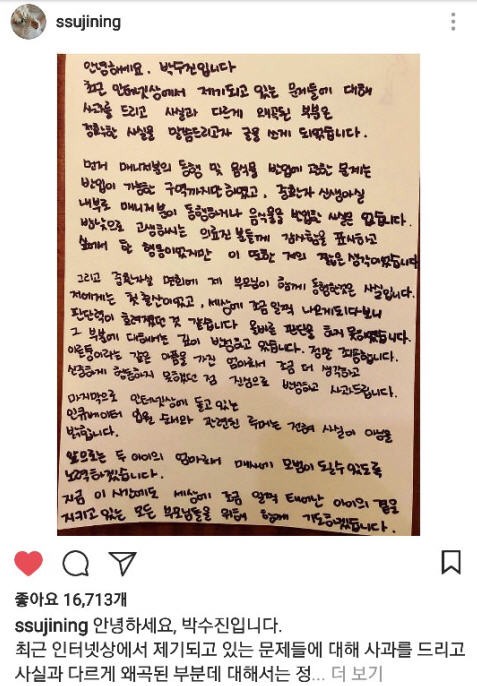 ssujining
안녕하세요, 박수진입니다
최근 인터넷상에서 제기되고 있는 문제들에 대해
사과를 드리고 사실과 다르게 왜곡된 부분은
정확한 사실을 말씀드리고자 글을 쓰게 되었습니다.
먼저 매니저분의 동행 및 음식물 반입에 관한 문제는
반입이 가능한 구역까지만 하였고, 중환자 신생아실
내부로 매니저분이 동행하거나 음식물을 반입한 사실은 없습니다.
밤낮으로 고생하시는 의료진 분들께 감사함을 표시하고
싶어서 한 행동이었지만 이 또한 저의 짧은 생각이었습니다
그리고 중환자실 면회에 제 부모님이 함께 동행한것은 사실입니다.
저에게는 첫 출산이었고, 세상에 조금 일찍 나오게되다보니
판단력이 흐려졌던 것 같습니다. 올바른 판단을 하지 못하였습니다.
그 부분에 대해서는 깊이 반성하고 있습니다. 정말 죄송합니다.
이른둥이라는 같은 아픔을 가진 엄마로서 조금 더 생각하고
신중하게 행동하지 못했던 점 진심으로 반성하고 사과드립니다.
마지막으로 인터넷상에 돌고 있는
인큐베이터 입원 순서와 관련된 루머는 전혀 사실이 아님을
밝힙니다.
앞으로는 두 아이의 엄마로서 매사에 모범이 되일수 있도록
노력하겠습니다.
지금 이 시간에도 세상에 조금 일찍 태어난 아이의 곁을
지키고 있는 모든 부모님들을 위해 함께 기도하겠습니다.
좋아요 16,713개
ssujining 안녕하세요, 박수진입니다.
최근 인터넷상에서 제기되고 있는 문제들에 대해 사과를 드리고
사실과 다르게 왜곡된 부분데 대해서는 정... 더 보기